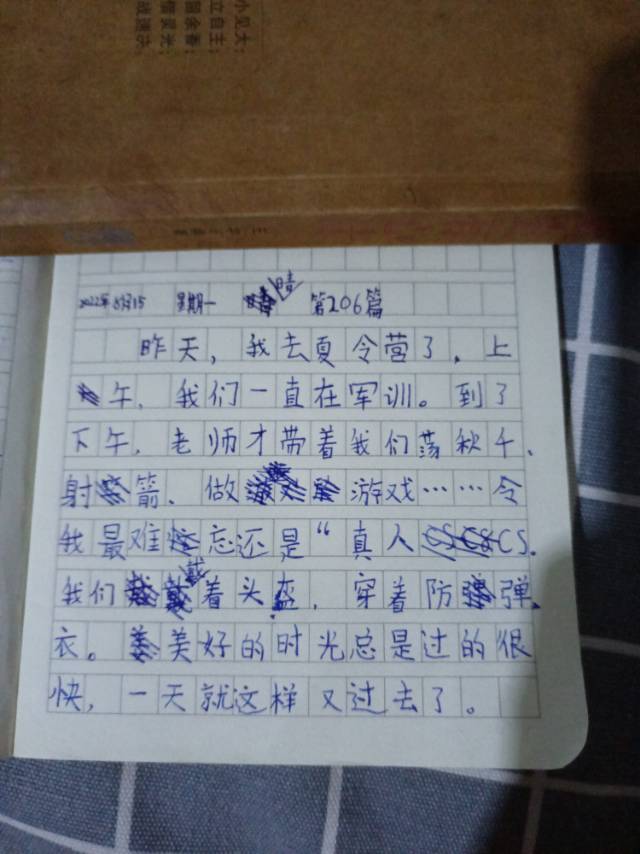 小见大：
立自主：
留余香：
借灵光：
战速决：
2022年8月15 星期一 晴 第206篇
昨天，我去夏令营了，上
午，我们一直在军训。到了
下午，老师才带着我们荡秋千、
射箭、做游戏……令
我最难忘还是“真人CS.
我们戴着头盔，穿着防弹
衣。美好的时光总是过的很
快，一天就这样又过去了。